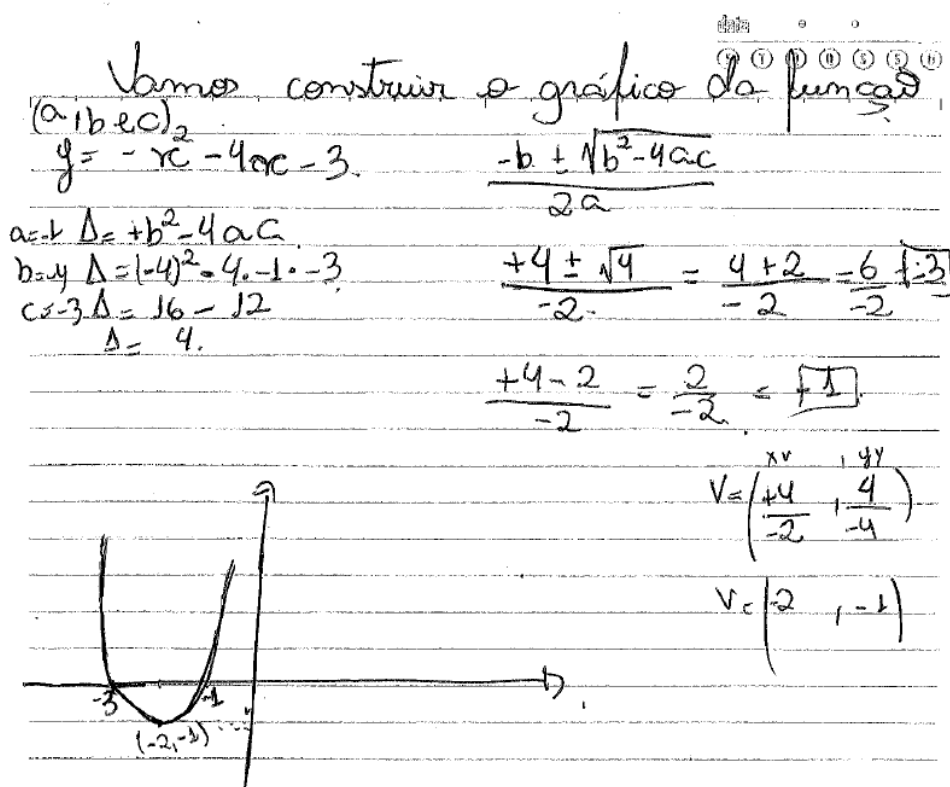 data
Vamos construir o gráfico da função
(a, b e c)
y = -x² - 4x - 3.
-b ± √b²-4ac
2a
a=-1 Δ= +b²-4ac
b=-4 Δ=(-4)² - 4.-1.-3
c=-3 Δ= 16 - 12
Δ= 4.
+4 ± √4 = 4+2 = -6
-2. -2 -2
+4-2 = 2 =
-2 -2
xv , yv
V= (+4 , 4)
-2 -4
V= (-2 , -1)
-3 -1
(-2,-1)